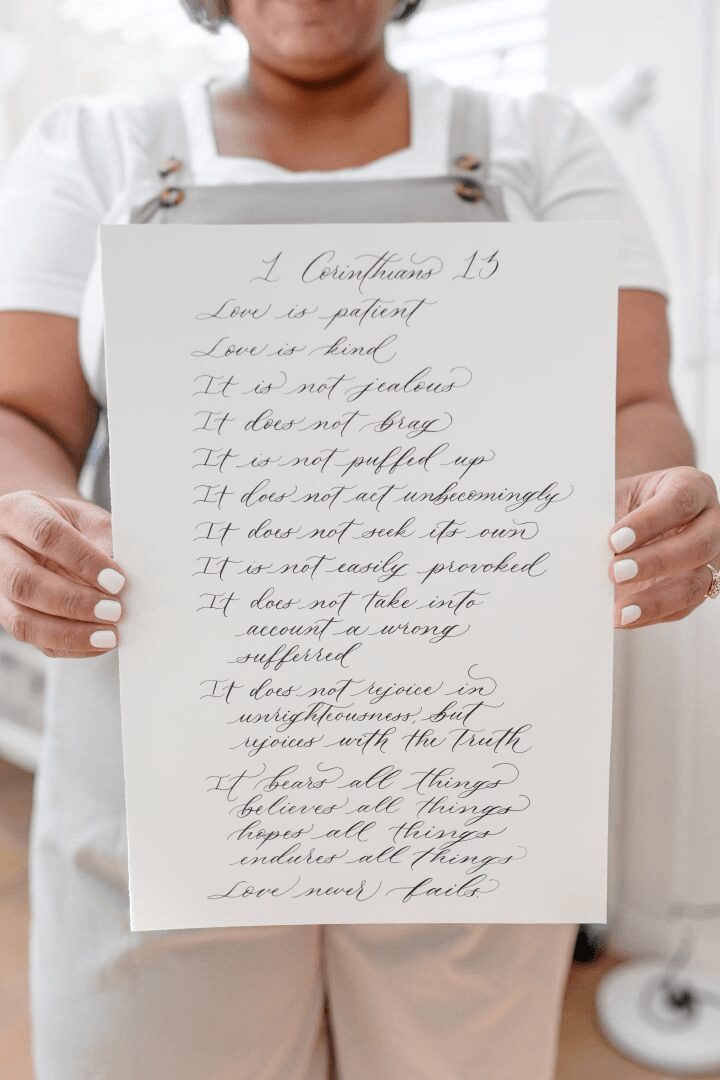 1 Corinthians 13
Love is patient
Love is kind
It is not jealous
It does not brag
It is not puffed up
It does not act unbecomingly
It does not seek its own
It is not easily provoked
It does not take into
account a wrong
sufferred
It does not rejoice in
unrighteousness, but
rejoices with the Truth
It bears all things
believes all things
hopes all things
endures all things
Love never fails.